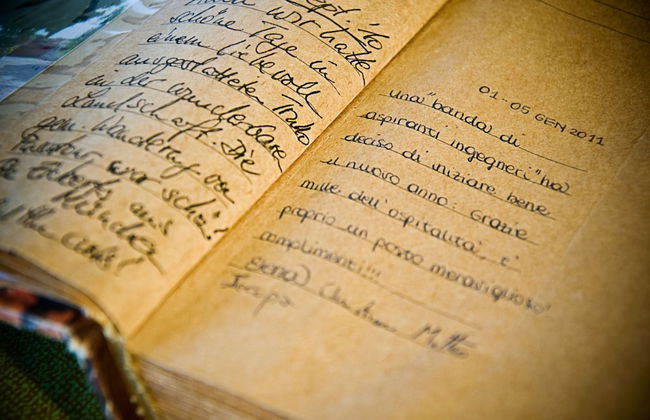 Sept. '10
wir hatte
schöne Tage in
einem liebevoll
ausgestatteten Trullo
in der wunderbare
Landschaft. Die
Wanderung von
war schön!
aus
01-05 GEN 2011
una "banda" di
aspiranti ingegneri "ha
deciso di iniziare bene
il nuovo anno: grazie
mille dell'ospitalità, è
proprio un posto meraviglioso!
complimenti!!!
Elena Christian Matteo